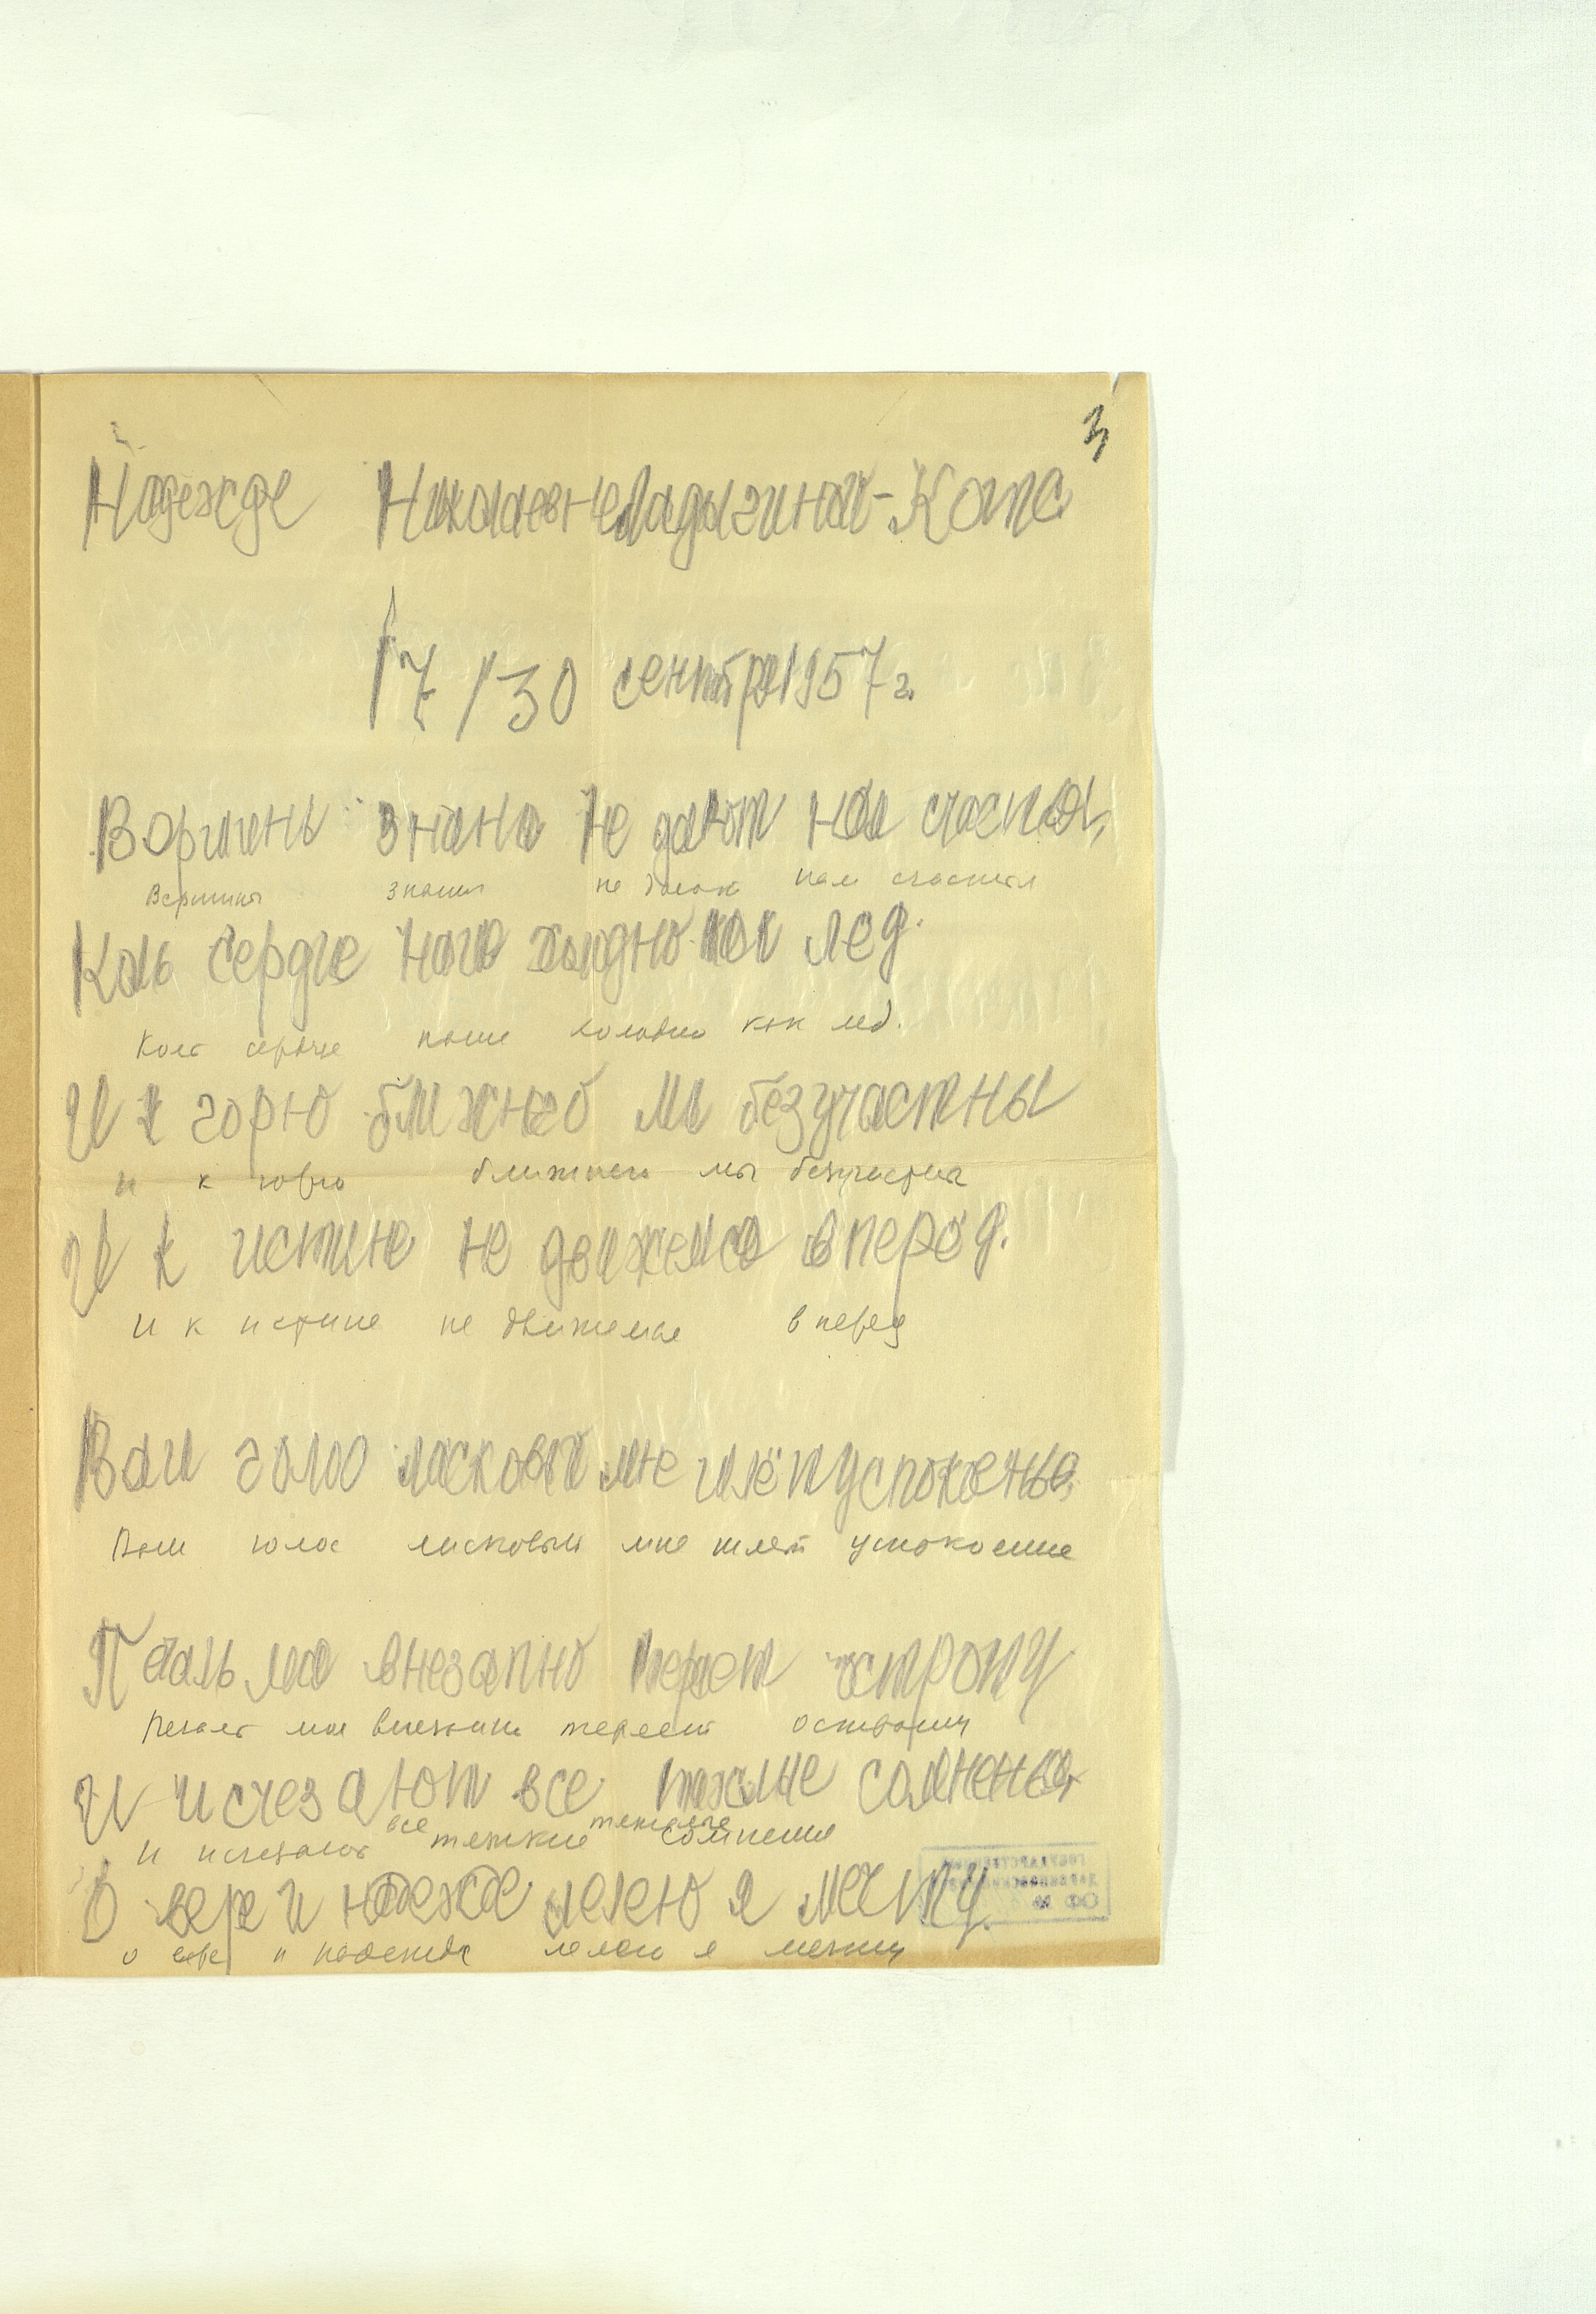 3
Надежде Николаевне Ладыгиной-Котс
17/30 сентября 1957 г.
знания не дают нам счастья,
Вершины знания не дают нам счастья
Коль сердце наше холодно как лед.
Коль сердце наше холодно как лед.
И к горю ближнего мы безучастны
и к горю ближнего мы безучастны
И к истине не движемся вперёд.
и к истине не движемся вперед
Ваш голос ласковый мне шлёт успокоенье,
Ваш голос ласковый мне шлет успокоение
Печаль моя внезапно теряет остроту
Печаль моя внезапно теряет остроту
И исчезают все тяжелые сомненья
все тяжелые
и исчезают тяжкие сомнения
О вере и надежде лелею я мечту.
о вере и надежде лелею я мечту